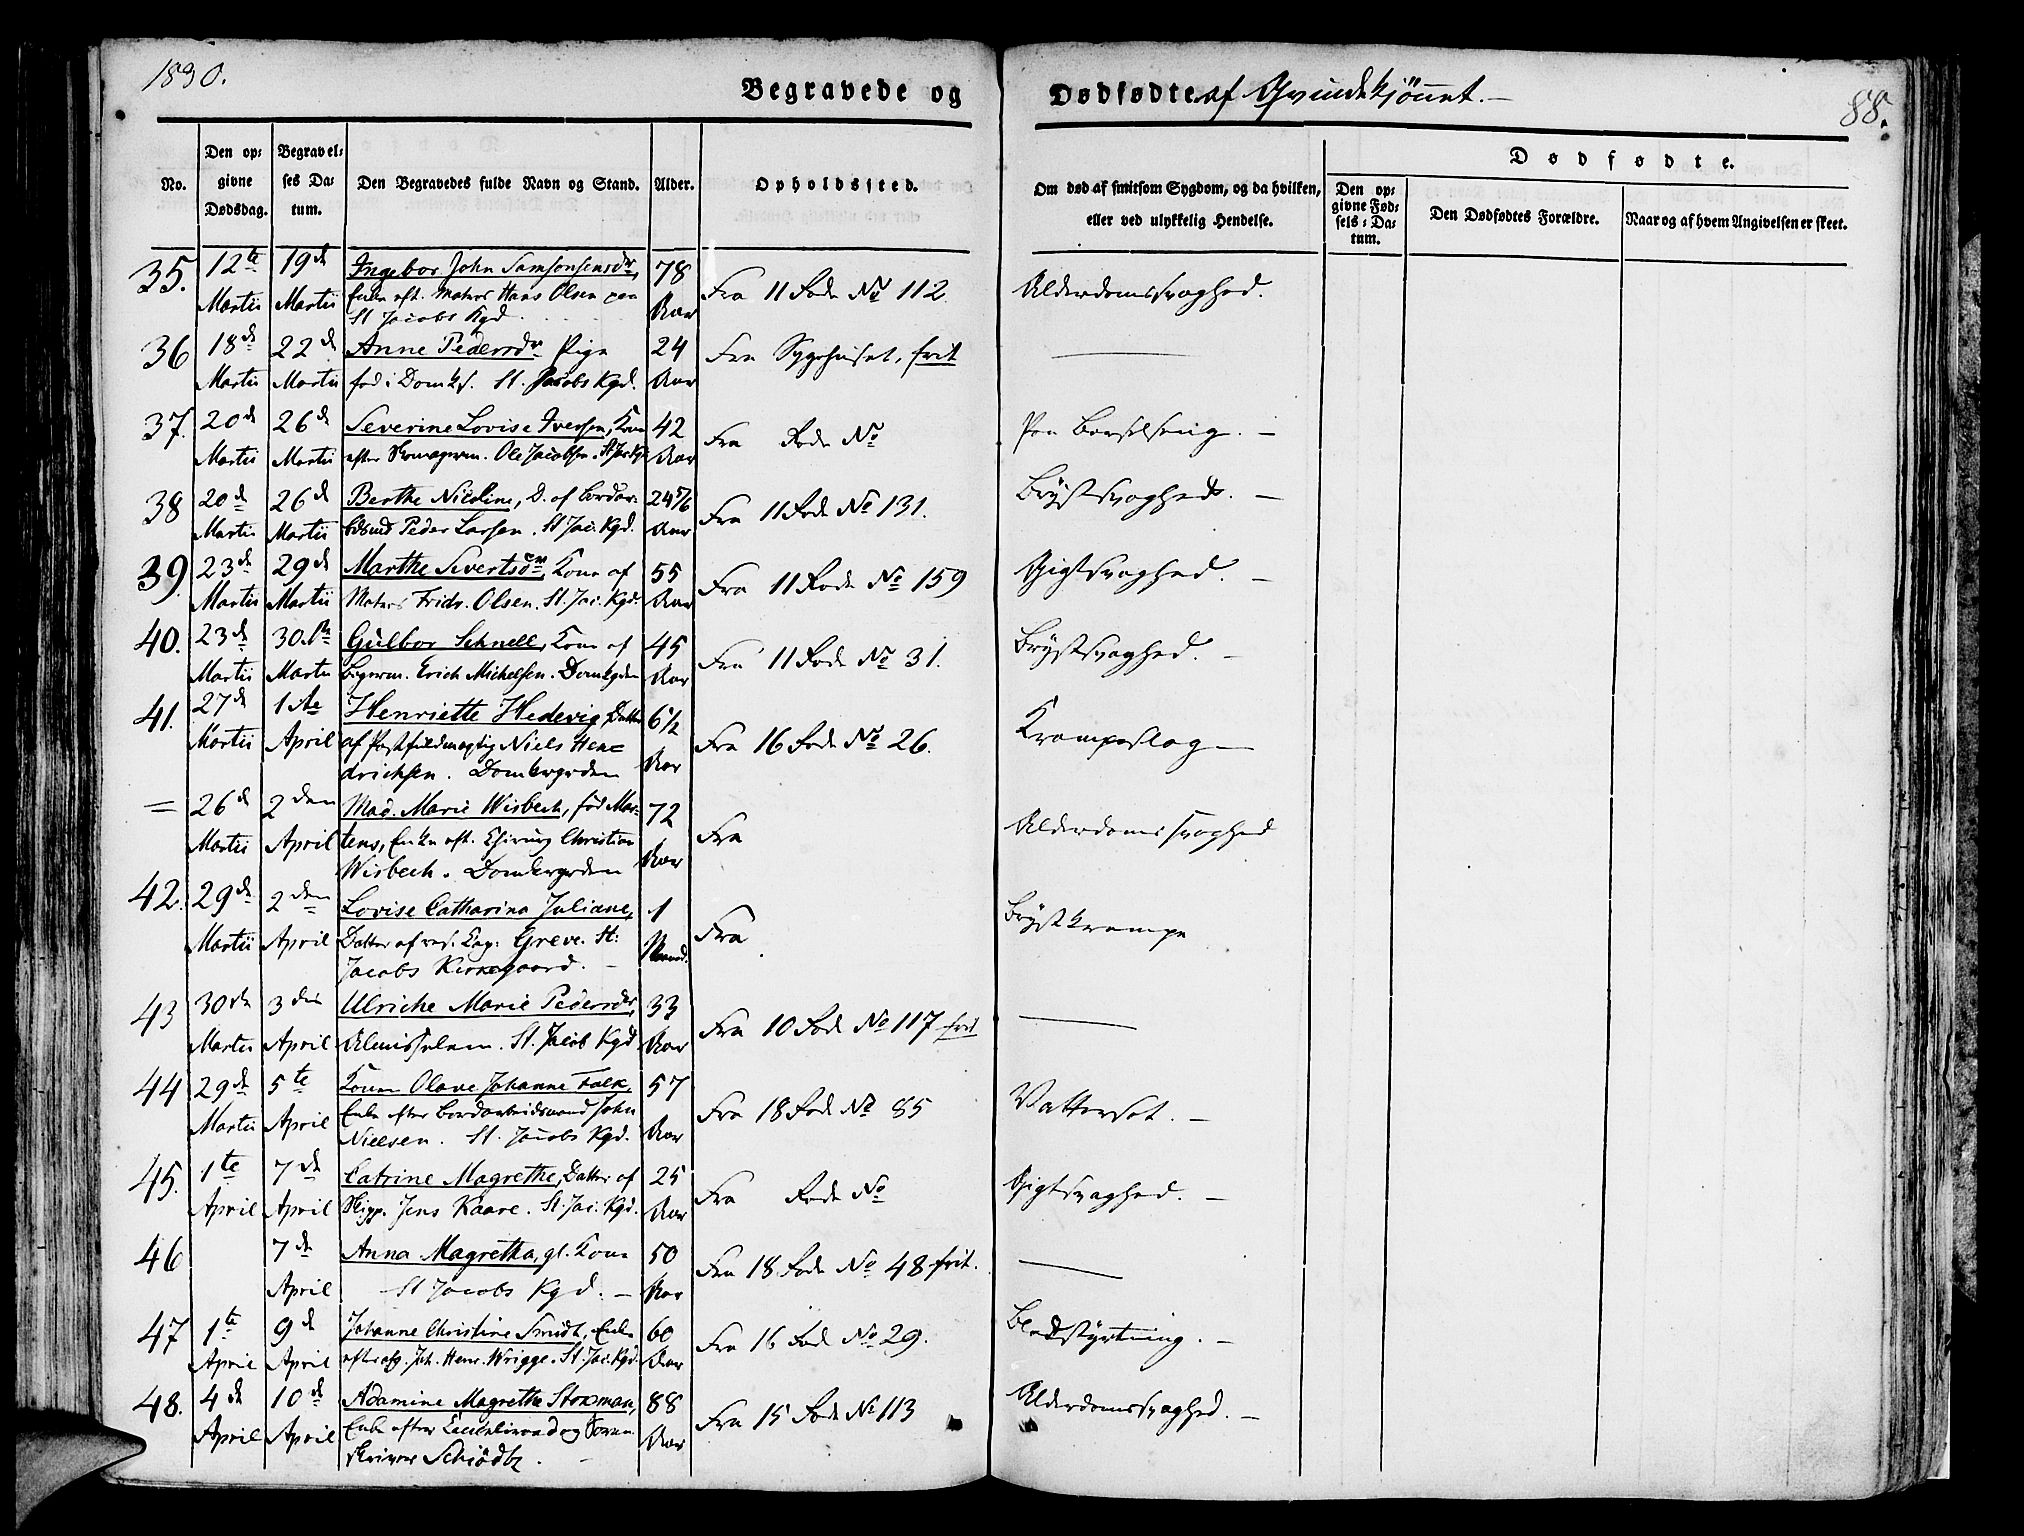 1830.
Begravede og Dødfødte af Qvindekjönnet.
88.
No.
Den opgivne Dødsdag.
Begravelses Datum.
Den Begravedes fulde Navn og Stand.
Alder.
Opholdssted.
Om død af smitsom Sygdom, og da hvilken,
eller ved ulykkelig Hendelse.
Dødfødte.
Den opgivne Fødsels-Datum.
Den Dødfødtes Forældre.
Naar og af hvem Angivelsen er skeet.
35. 12te Martii 19d Martii Ingebor John Samsonsensdr, 78 Aar Fra 11 Rode No 112. Alderdomssvaghed.
Enke eft. Matros Hans Olsen paa
St Jacobs Kgd.
36 18de Martii 22d Martii Anne Pedersdr Pige 24 Aar Fra Sygehuset, frit
fød i Domk. St. Jacobs Kgd.
37. 20d Martii 26d Martii Severine Lovise Iversen, Kone 42 Aar Fra Rode No Paa Barselseng.
efter Skomagerm. Ole Jacobsen. St Jac Kgd
38 20d Martii 26d Martii Berthe Nicoline, D. af Bordar- 24 5/6 Aar Fra 11 Rode No 131. Brystsvaghed.
bdsmd Peder Larsen. St. Jac. Kgd.
39. 23d Martii 29d Martii Marthe Sivertsdr, Kone af 55 Aar Fra 11 Rode No 159 Gigtsvaghed.
Matros Fridr. Olsen. St. Jac. Kgd.
40. 23d Martii 30te Martii Gulbor Schnell, Kone af 45 Aar Fra 11 Rode No 31. Brystsvaghed.
Bagerm. Erich Michelsen. Domkgden
41. 27d Martii 1ste April Henriette Hedevig, Datter 6 1/2 Aar Fra 16 Rode No 26. Krampeslag
af Postfuldmægtig Niels Hen=
drichsen. Domkirgrden
= 26d Martii 2den April Mad. Marie Wisbech, fød Mar- 72 Aar Fra Alderdomssvaghed
tens, Enke eft. Chirurg Christian
Wisbech. Domkirgrden
42. 29de Martii 2den April Lovise Catharina Juliane, 1 Maaned. Fra Brystkrampe
Datter af res. Cap: Greve. St:
Jacobs Kirkegaard.
43 30de Martii 3die April Ulriche Marie Pedersdr, 33 Aar Fra 10 Rode No 117 frit
Almisselem. St. Jacob Kgd
44 29de Martii 5te April Konen Olave Johanne Falk, 57 Aar Fra 18 Rode No 85 Vattersot.
Enke efter Bordarbeidsmand John
Nielsen. St. Jacobs Kgd.
45. 1te April 7de April Catrine Magrethe, Datter af 25 Aar Fra Rode No Gigtsvaghed.
Skipp. Jens Kaare. St. Jac. Kgd.
46 7de April Anna Magretha, gl. Kone 50 Aar Fra 18 Rode No 48 frit.
St Jacobs Kgd.
47 1te April 9d April Johanne Christine Smidt, Enke 60 Aar Fra 16 Rode No 29. Blodstyrtning.
efter afg. Joh. Henr. Wrigge. St. Jac. Kgd
48. 4de April 10de April Adamine Magrethe Storman, 88 Aar Fra 15 Rode No 113 Alderdomssvaghed.
Enke efter og Soren-
skriver Schiödtz.